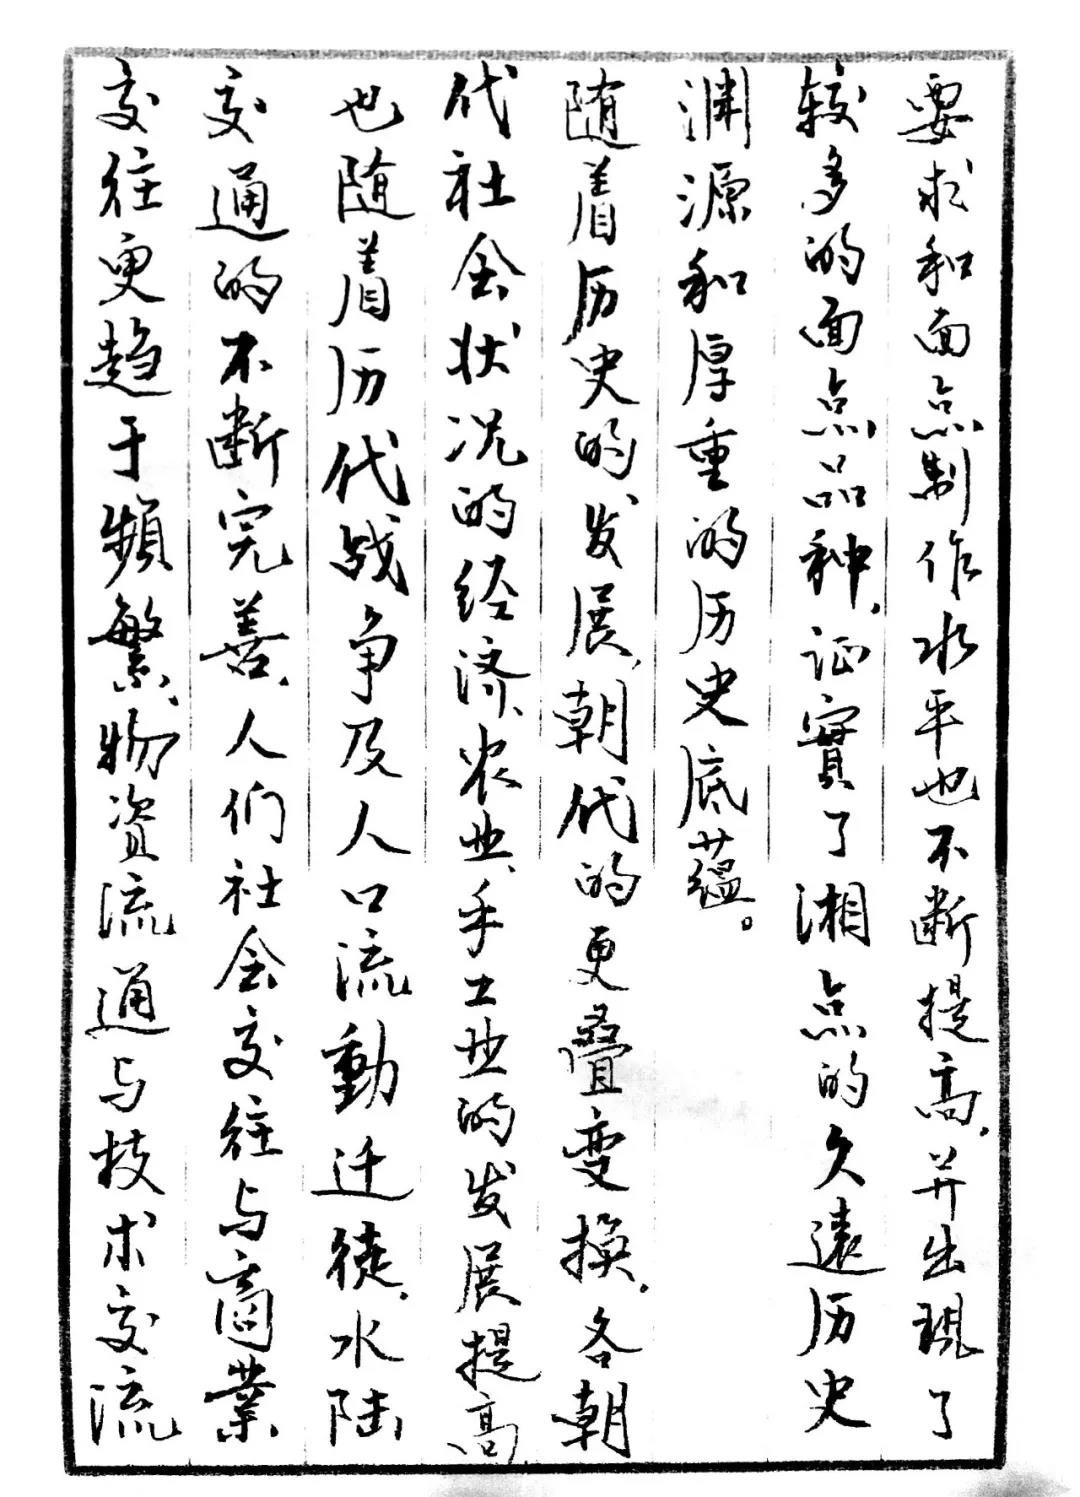 要求和面点制作水平也不断提高，并出现了
较多的面点品种，证實了湘点的久遠历史
渊源和厚重的历史底蕴。
随着历史的发展，朝代的更叠变换，各朝
代社会状况的经济、农业、手工业的发展提高
也随着历代战争及人口流動迁徙，水陆
交通的不断完善，人们社会交往与商業
交往更趋于頻繁，物资流通与技术交流